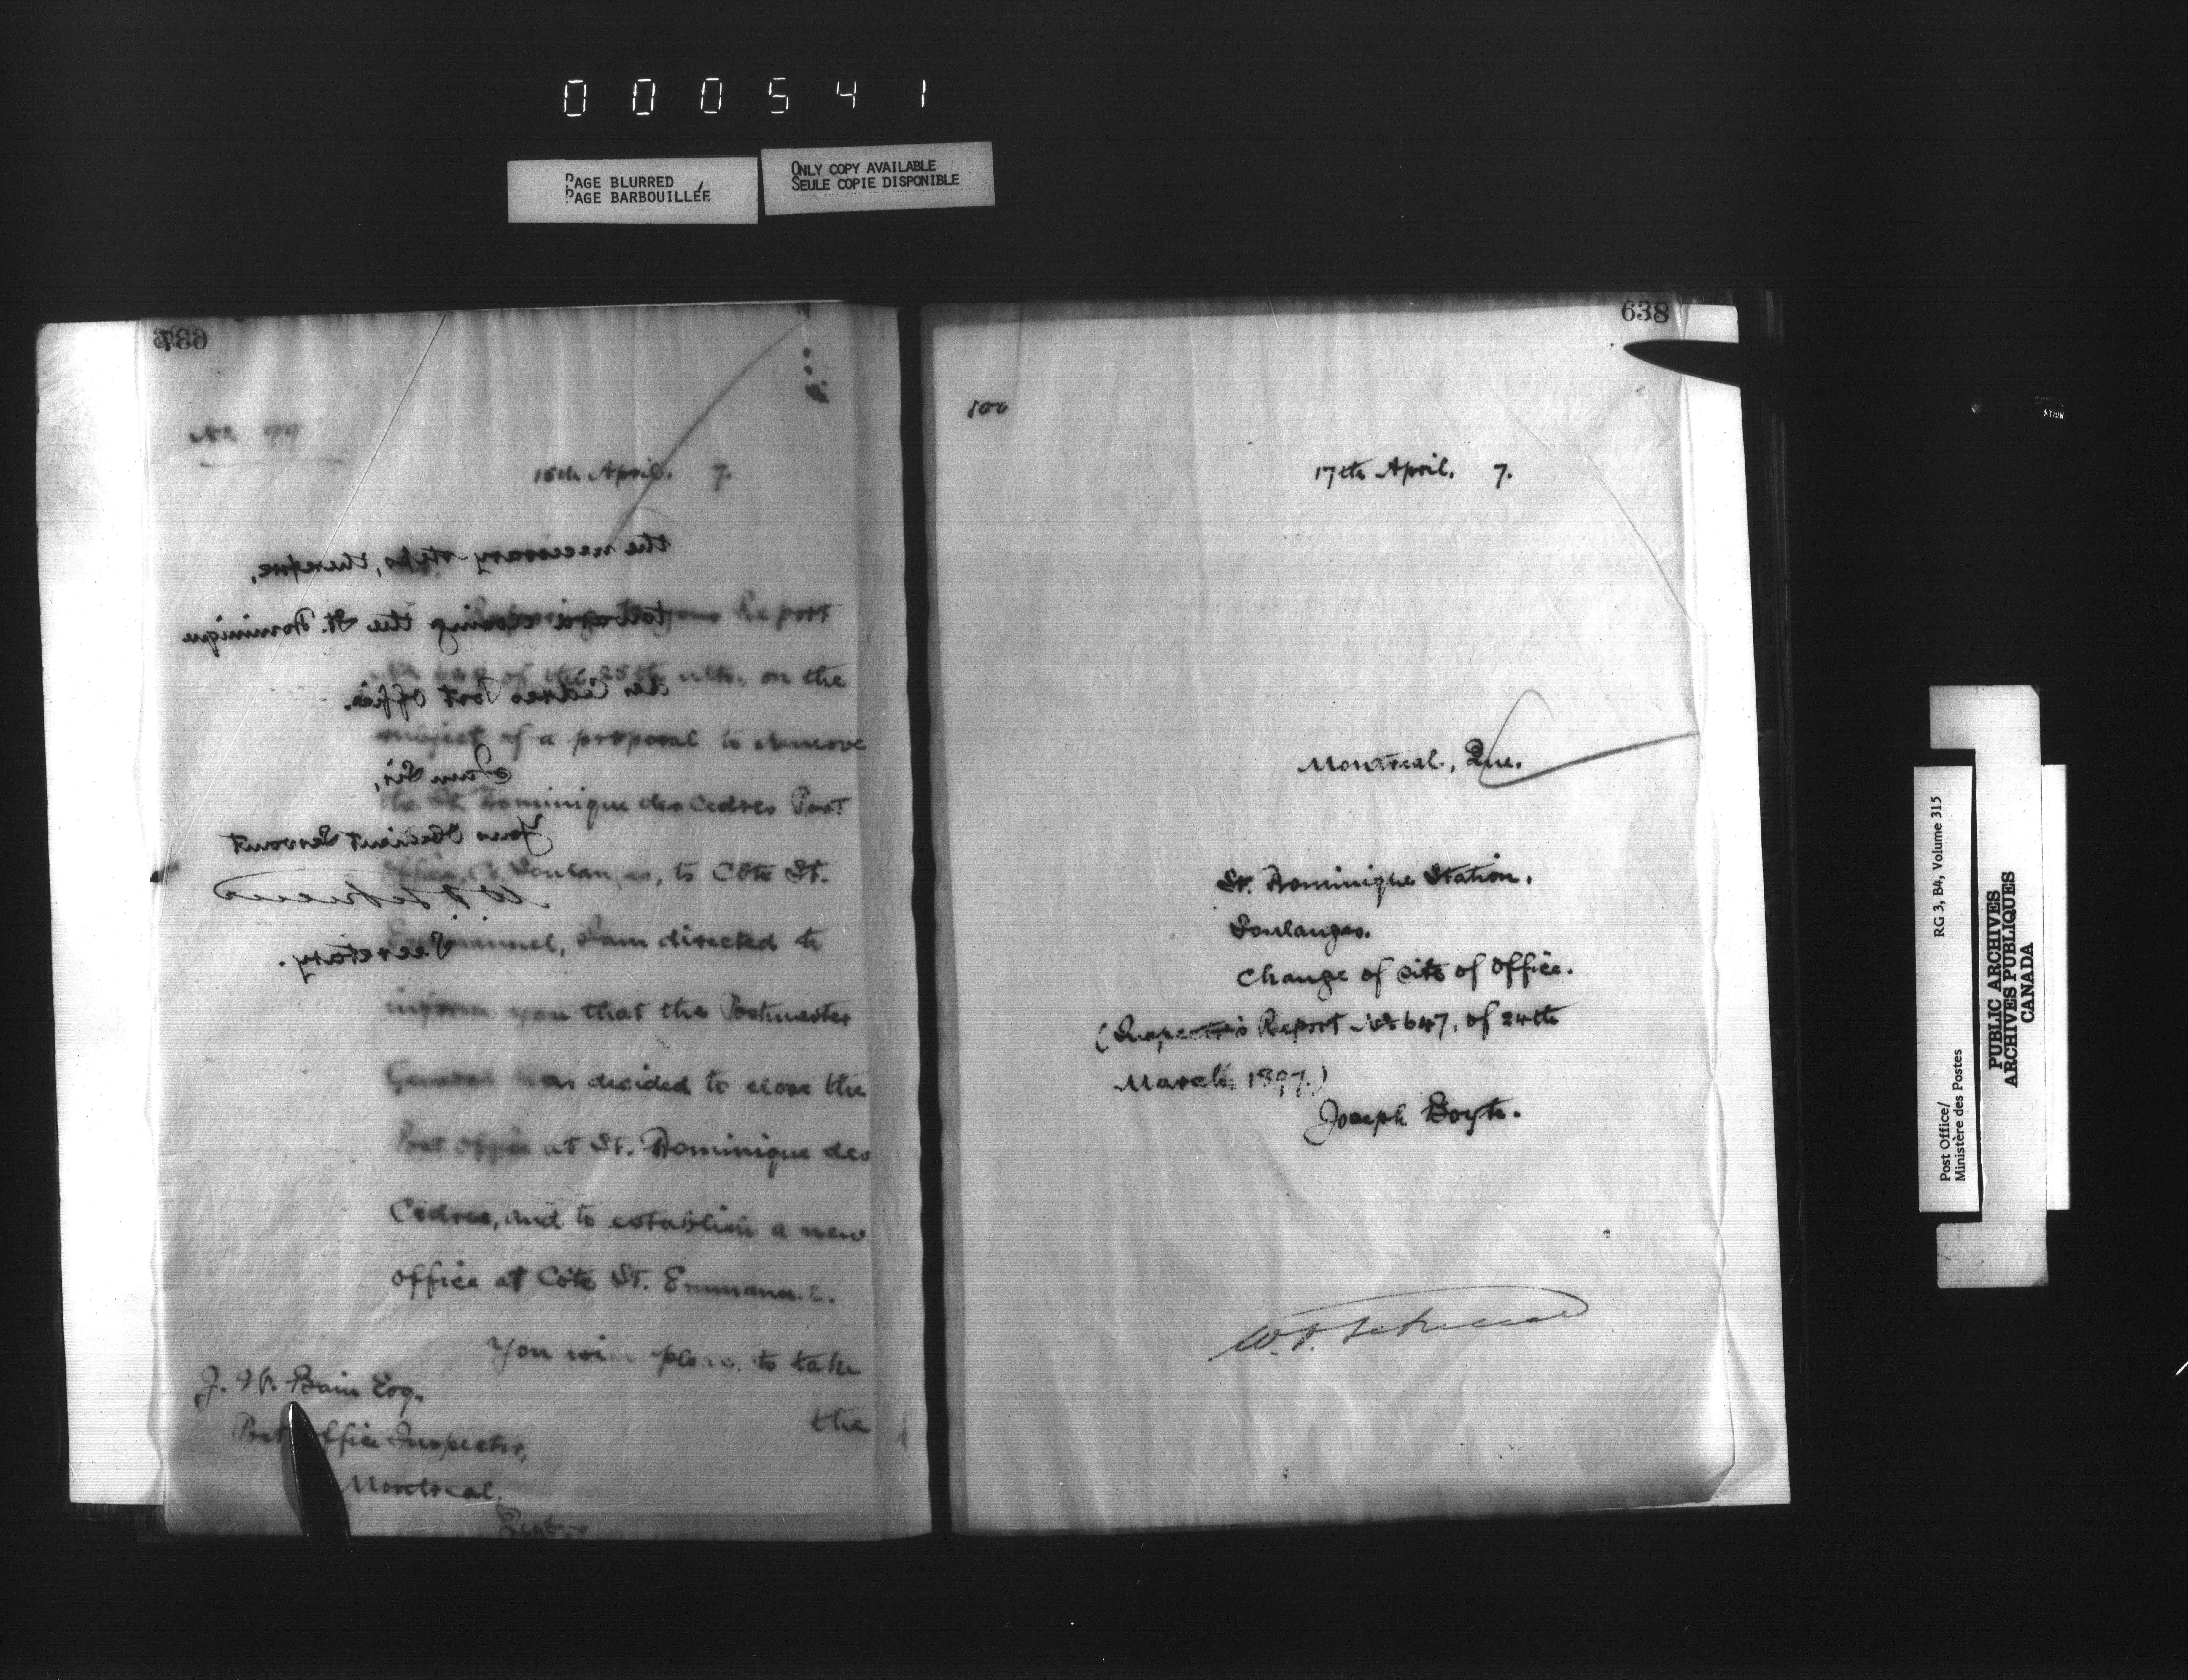 000541
PAGE BLURRED
PAGE BARBOUILLÉE
ONLY COPY AVAILABLE
SEULE COPIE DISPONIBLE
637
No 99
16th April. 7.
Report
of the 25th ulto., on the
subject of a proposal to remove
the St. Dominique des Cedres Post
Office, Co. Soulanges, to Côte St.
Emmanuel, I am directed to
inform you that the Postmaster
General has decided to close the
Post Office at St. Dominique des
Cedres, and to establish a new
office at Côte St. Emmanuel.
You will please to take
the
J. W. Bain Esq.
Post Office Inspector,
Montreal.
the necessary steps, therefore,
towards closing the St. Dominique
des Cedres Post Office.
I am Sir,
Your Obedient Servant
Secretary.
638
500
17th April. 7.
Montreal, Que.
St. Dominique Station.
Soulanges.
Change of site of Office.
(Inspector's Report No 647, of 24th
March, 1897.)
Joseph Boyte.
Post Office/
Ministère des Postes
RG 3, B4, Volume 315
PUBLIC ARCHIVES
ARCHIVES PUBLIQUES
CANADA